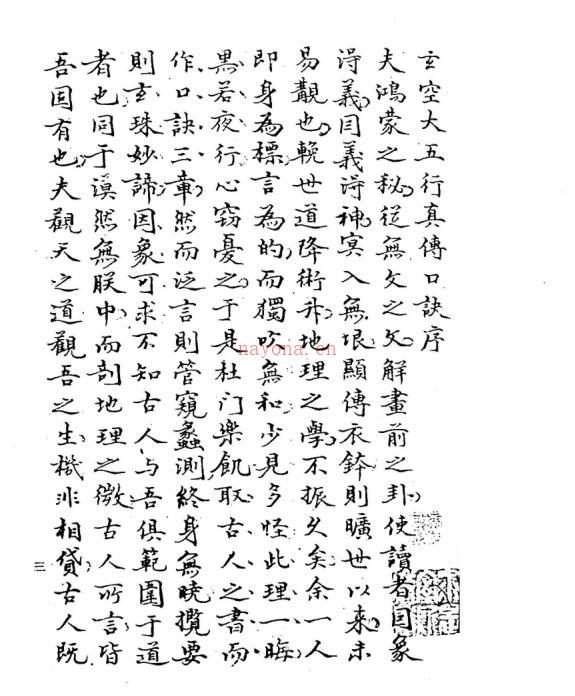 玄空大五行真傳口訣序
夫鴻蒙之秘從無文之文解畫前之卦使讀者因象
淂義因義淂神冥入無垠顯傳衣鉢則曠世以来未
易覯也輓世道降術升地理之學不振久矣余一人
即身為標言為的而獨吹無和少見多怪此理一晦
黑若夜行心竊憂之于是杜门樂飢取古人之書而
作口訣三章然而泛言則管窺蠡測終身無曉攬要
則玄珠妙諦因象可求不知古人与吾俱範圍于道
者也同于漠然無朕中而剖地理之微古人所言皆
吾固有也夫觀天之道觀吾之生機非相貸古人既
三
nayona.cn